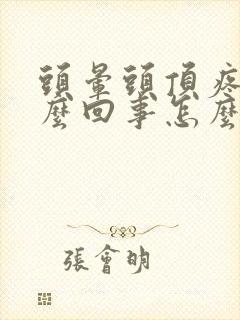 頭暈頭頂疼
麼回事怎麼
張會明